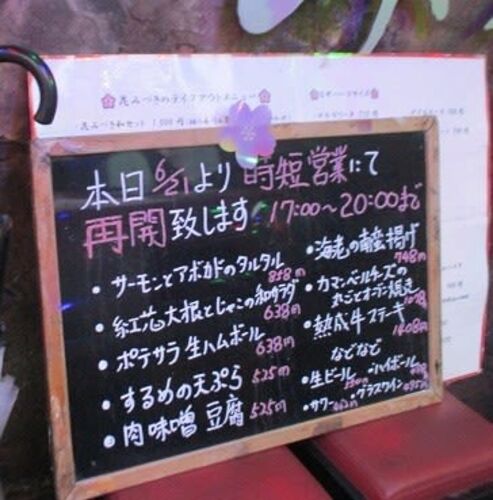 花みづきのテイクアウトメニュー
本日6/21より時短営業にて
再開致します 17:00〜20:00まで
・サーモンとアボカドのタルタル 858円
・紅芯大根とじゃこの和サラダ 638円
・ポテサラ生ハムボール 638円
・するめの天ぷら 525円
・肉味噌豆腐 525円
・海老の南蛮揚げ 748円
・カマンベールチーズの
丸ごとオーブン焼き
・熟成牛ステーキ 1408円
などなど
・生ビール ・ハイボール
・サワー ・グラスワイン